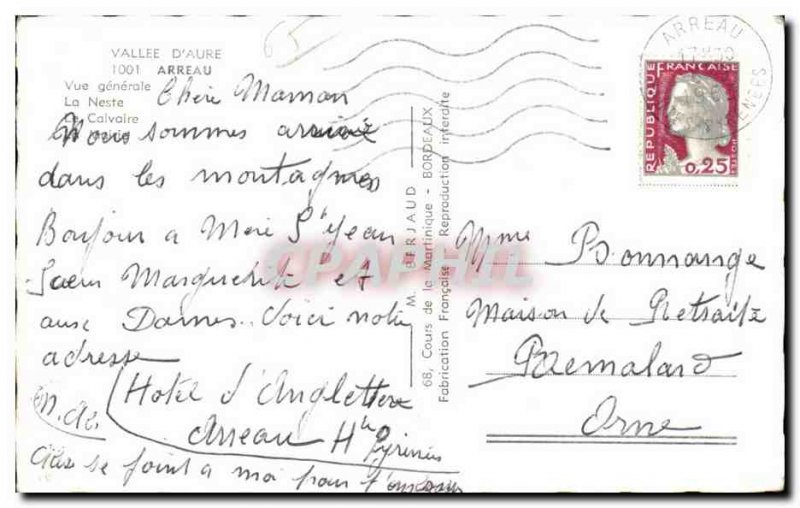 VALLEE D'AURE
1001 ARREAU
Vue générale
La Neste
Calvaire
Chère Maman
Nous sommes arrivés
dans les montagnes
Bonjour a Mère St Jean
Soeur Marguerite et
aux Dames. Voici notre
adresse
Hotel d'Angleterre
Arreau Htes
Pyrénées
se joint a moi pour
M. BERJAUD
68, Cours de la Martinique - BORDEAUX
Fabrication Française Reproduction interdite
ARREAU
PYRENEES
REPUBLIQUE FRANÇAISE
0,25
Mme Bonnange
Maison de Retraite
Remalard
Orne
CPAPHIL